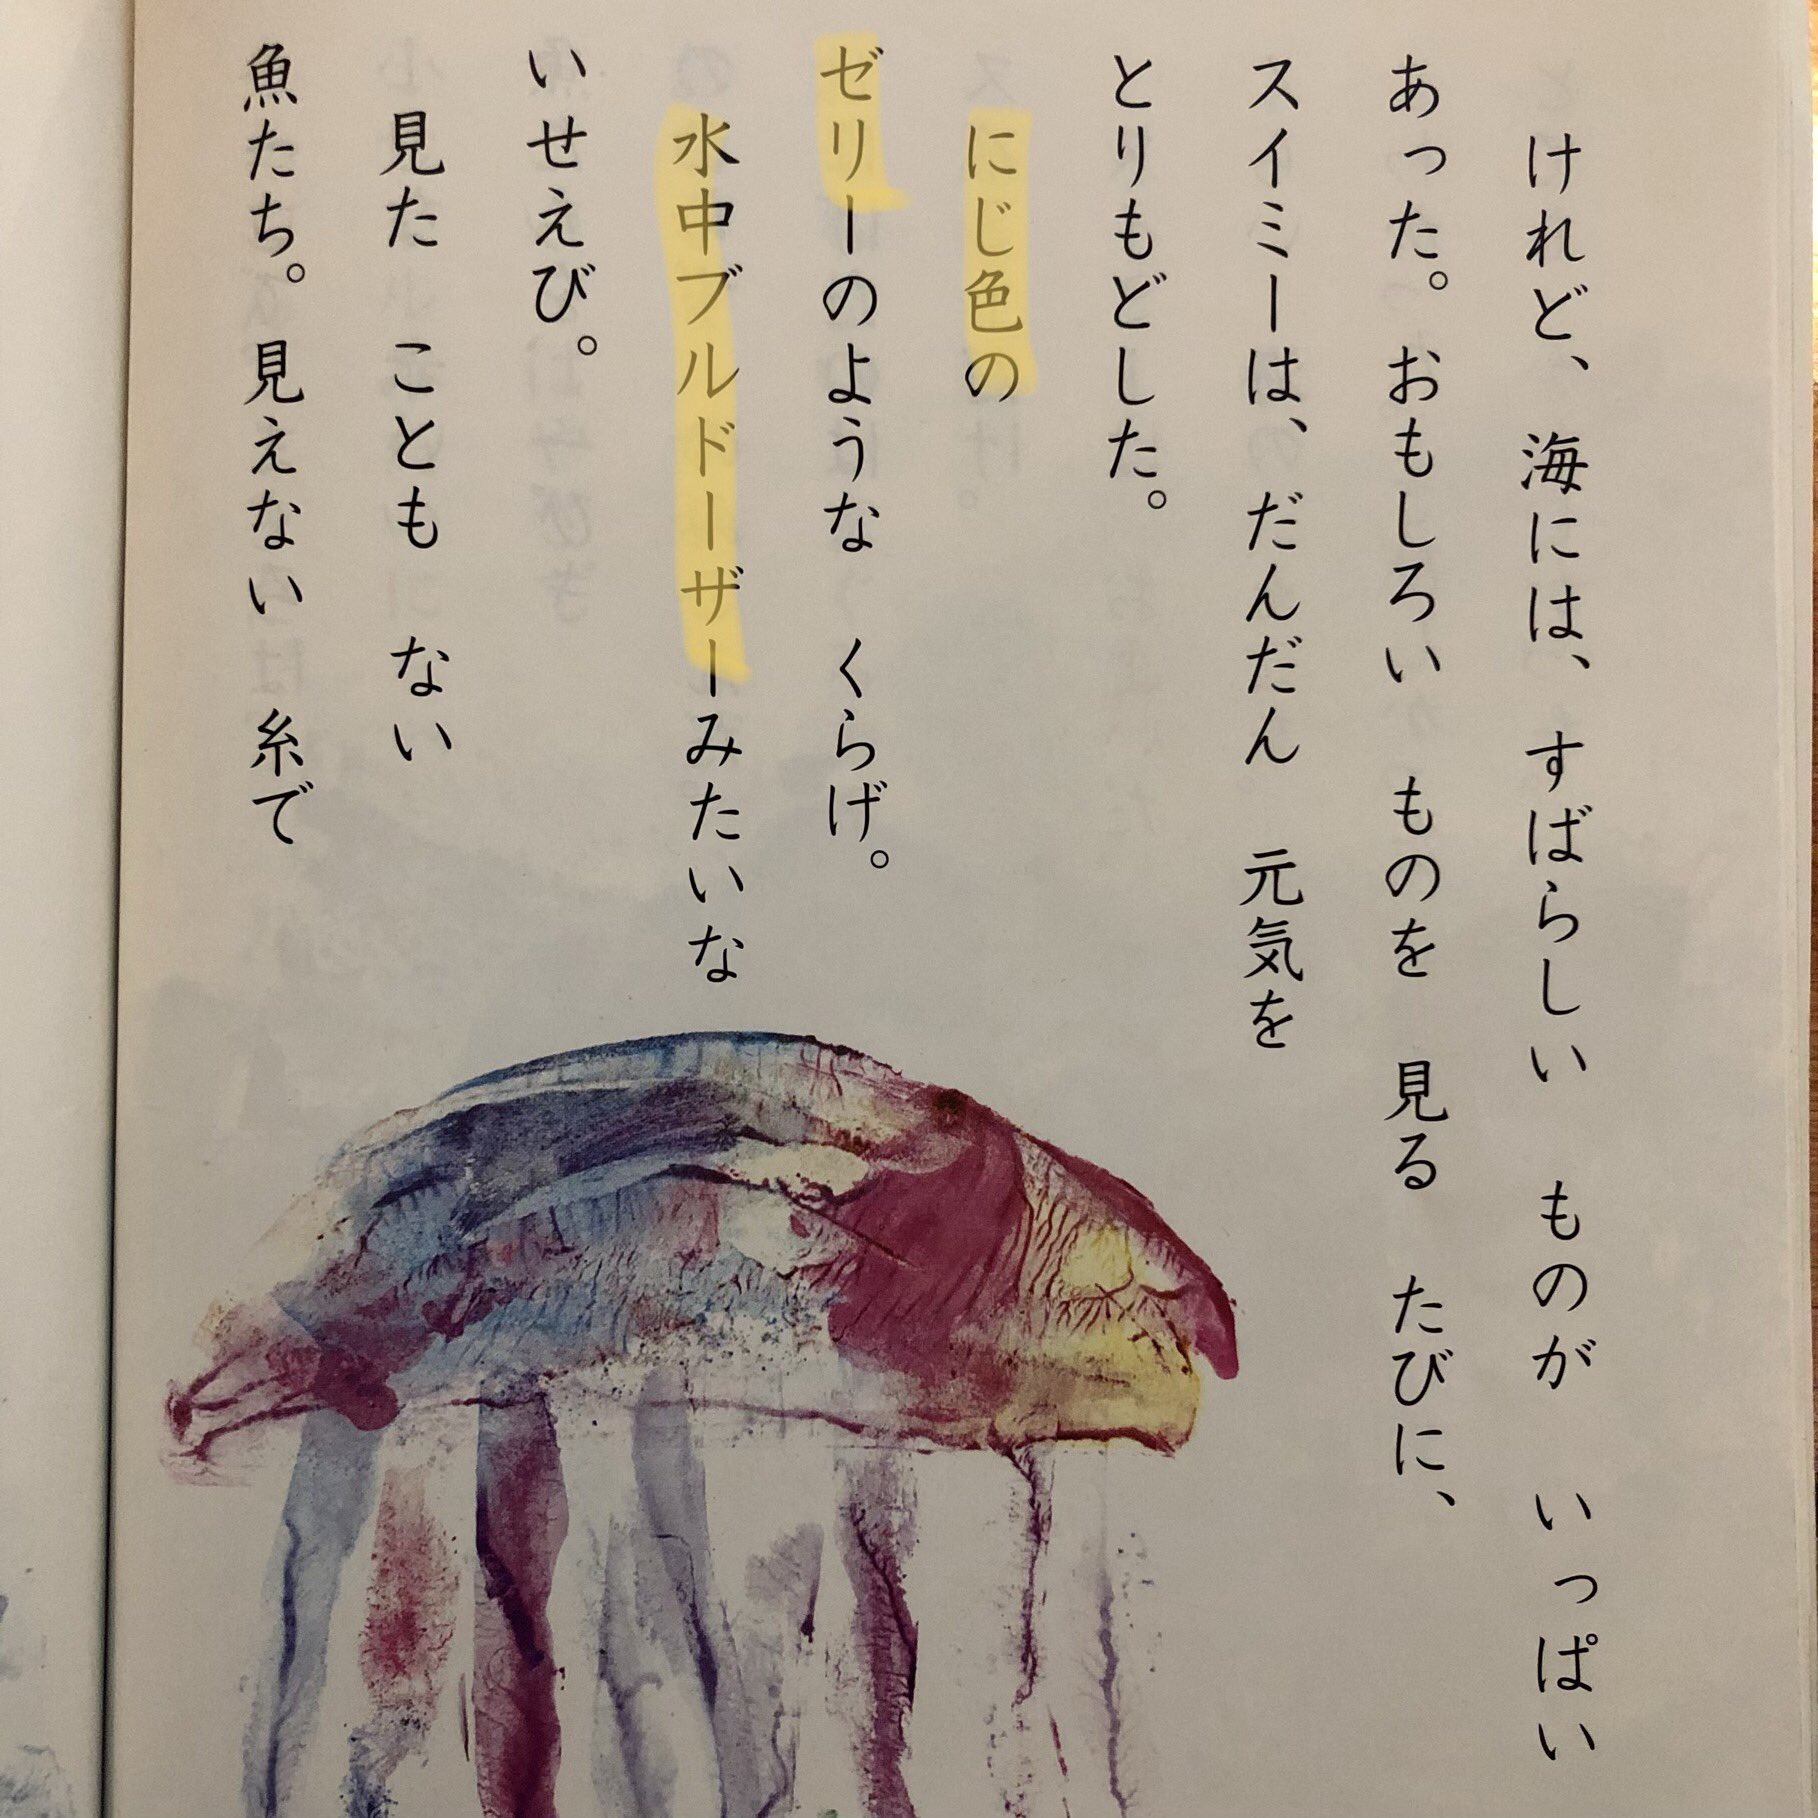 けれど、海には、すばらしい ものが いっぱい
あった。おもしろい ものを 見る たびに、
スイミーは、だんだん 元気を
とりもどした。
にじ色の
ゼリーのような くらげ。
水中ブルドーザーみたいな
いせえび。
見た ことも ない
魚たち。見えない 糸で